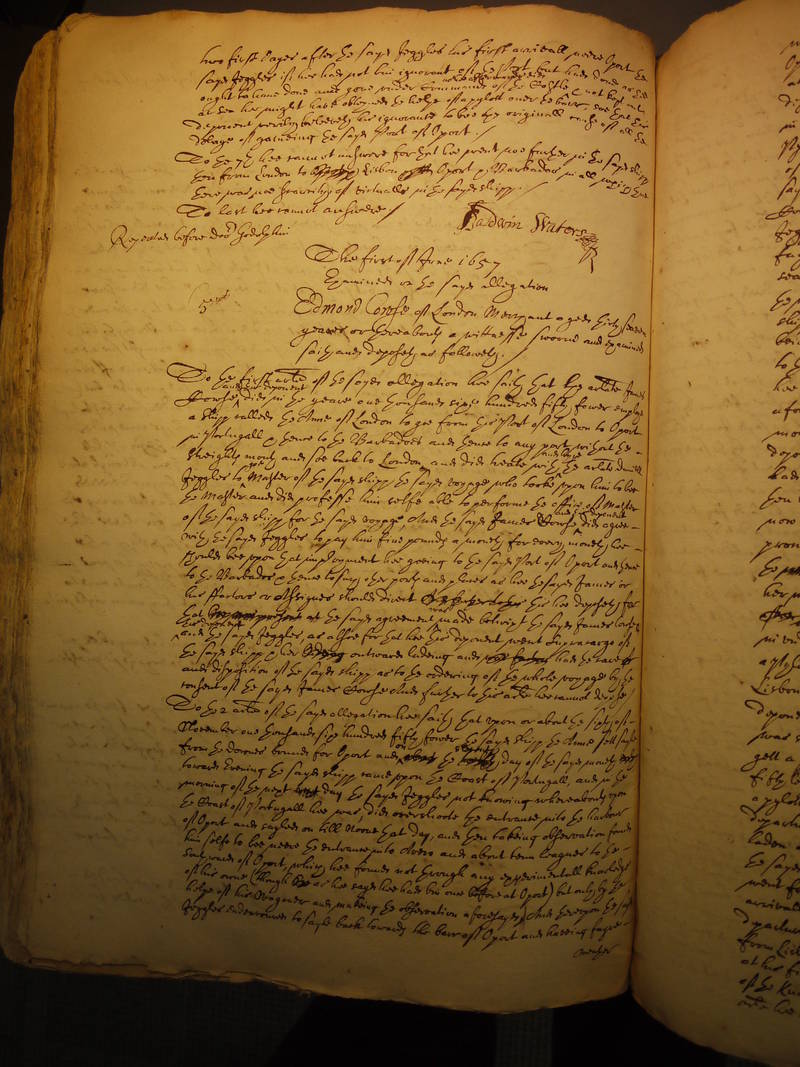 two first dayes after the sayd Jeggles his first arrivall neere Oport the
sayd Jeggles if hee had not bin ignorant of the Port but had done as hee
ought to have done and gone under Command of the Castle & not kept out
at sea hee might have obteyned the helpe of a pylott over the barre, soe that this
deponent verily beleeveth his ignorance to bee the originall cause of all the
delaye of gaineing the sayd Port of Oport ./
To the 7th hee cannot answere for that hee went noe further in the sayd shipp
then from London to Lisbon Oport & Barbados in all which time
there was noe scarcity of victualls in the sayd shipp.
To last hee cannot answere /
Baldwin Waters
Repeated before doctor Godolphin
The first of June 1657
Examined on the sayd allegation
5us
Edmond Corsse of London Merchant aged thirty seaven
yeares or thereabouts a wittnesse sworne and examined
saith and deposeth as followeth.
To the first article of the sayd allegation hee saith that the arlate James
and this deponent
did in the yeare one thousand sixe hundred fifty fower employ
a shipp called the Anne of London to goe from this Port of London to Oport
in Portugall & thence to the Barbadoes and thence to any port within the
Streights mouth and soe back to London, and did treate with the arlate Daniell
Jeggles to goe Master of the sayd shipp the sayd voyage who tooke upon him to bee
the Master and did professe him selfe able to performe the office of Master
of the sayd shipp for the sayd voyage, And the sayd James did agree
with the sayd Jeggles to pay him five pounds a month for every month hee
should bee upon that imployment hee goeing to the sayd Port of Oport and thence
to the Barbados & thence to such other ports and places as hee the sayd James or
his ffactors or Assignes should direct this hee deposeth for
that hee was at the sayd agreement made betwixt the sayd James
this deponent
and the sayd Jeggles, as alsoe for that hee this deponent went Supra cargo of
the sayd shipp & her outwards ladeing and had the care
and disposition of the sayd shipp as to the ordering of the whole voyage by the
consent of the sayd James And further to this article hee cannot depose /
To the 2 article of the sayd allegation hee saith that upon or about the sixth of
November one thousand six hundred fifty fower the sayd shipp the Anne sett sayle
from the Downes bound for Oport and on the day of the sayd moneth
towards Evening the sayd shipp came upon the Coast of Portugall, and in the
morning of the next day the sayd Jeggles not knowing whereabouts upon
the Coast of Portugall hee was, did overshoote the entrance into the harbour
of Oport and sayled on till Noone that day, and then takeing observation found
him selfe to bee neere the entrance into Avero and about tenn leagues to the
Southwards of Oport, which hee found not through any experimentall knowledge
of his owne (though as hee sayd hee had bin once before at Oport) but only by the
helpe of his Wagoner and makeing the observation aforesayd, And thereupon the sayd
Jeggles endeavoured to sayle back towards the barr of Oport and haveing
another